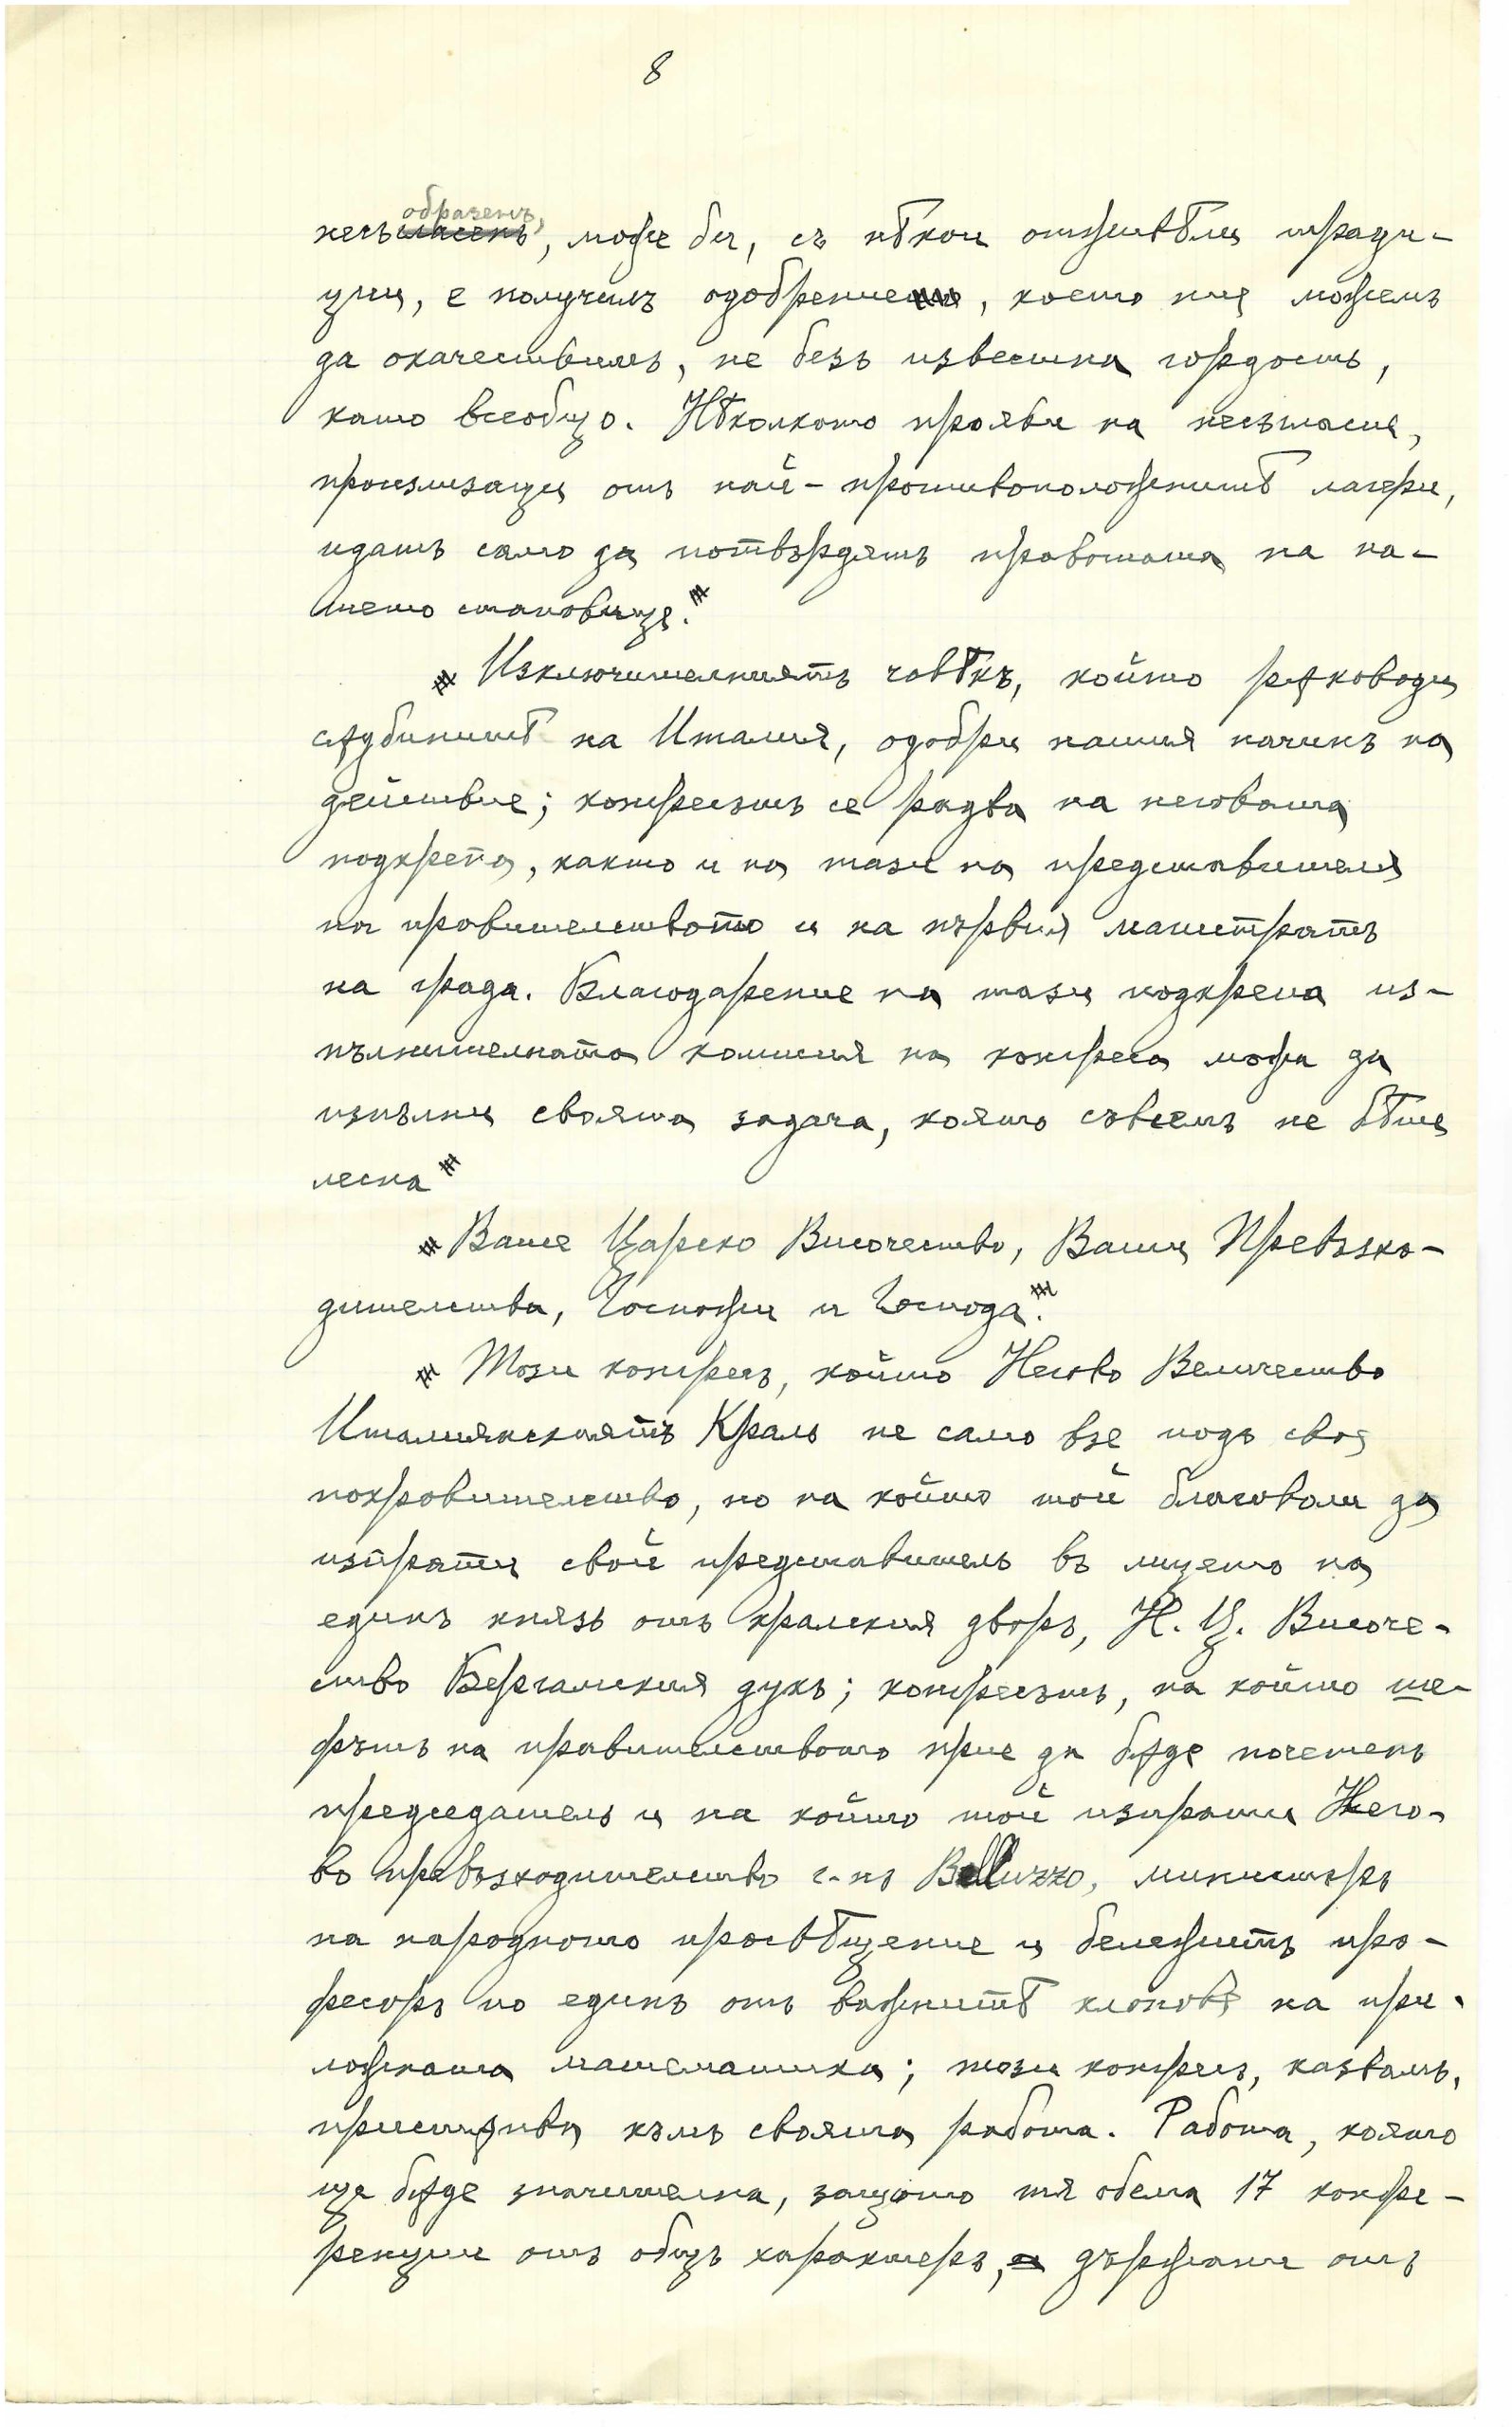 8
образенъ,
несъгласенъ, може би, съ нѣкои отживѣли тради-
ции, е получилъ одобрение, което ние можемъ
да окачествимъ, не безъ известна гордость,
като всеобщо. Нѣколкото прояви на несъгласие,
произлизащи отъ най-противоположнитѣ лагери,
идатъ само да потвърдятъ правотата на на-
шето становище."
"Изключителниятъ човѣкъ, който рѫководи
сѫдбинитѣ на Италия, одобри нашия начинъ на
действие; конгресътъ се радва на неговата
подкрепа, както и на тази на представителя
на правителството и на първия магистратъ
на града. Благодарение на тази подкрепа из-
пълнителната комисия на конгреса можа да
изпълни своята задача, която съвсемъ не бѣше
лесна"
"Ваше Царско Височество, Ваши Превъзхо-
дителства, Госпожи и Господа."
"Този конгресъ, който Негово Величество
Италиянскиятъ Краль не само взе подъ свое
покровителство, но на който той благоволи да
изпрати свой представитель въ лицето на
единъ князъ отъ кралския дворъ, Н. Ц. Височе-
ство Бергамския дукъ; конгресътъ, на който ше-
фътъ на правителството прие да бѫде почетенъ
председатель и на който той изпрати Него-
во превъзходителство г-нъ Belluzzo, министъръ
на народното просвѣщение и бележитъ про-
фесоръ по единъ отъ важнитѣ клонове на при-
ложната математика; този конгресъ, казвамъ,
пристѫпва къмъ своята работа. Работа, която
ще бѫде значителна, защото тя обема 17 конфе-
ренции отъ общъ характеръ, държани отъ